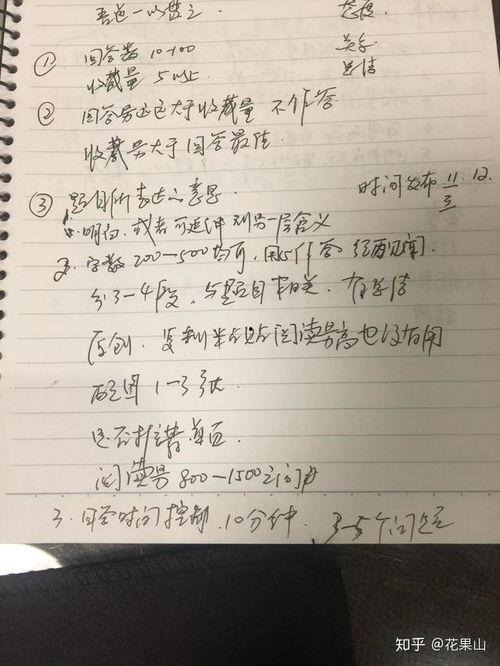 吾道一以贯之 态度
① 回答数 10-100 关予
收藏量 5以上 总结
② 回答量远远大于收藏量 不作答
收藏量大于回答最佳
③ 题目所表达的意思 时间发布 11 12.
明白, 或者可延伸到另一层含义
2. 字数 200—500均可, 用心作答
分3—4段, 与题目相关, 有总结
原创, 复制 阅读量高也没有用
配图 1—3张
是否推荐首页
阅读量 800—1500之间
3. 回答时间控制, 10分钟. 3-5个问题
知乎 @花果山